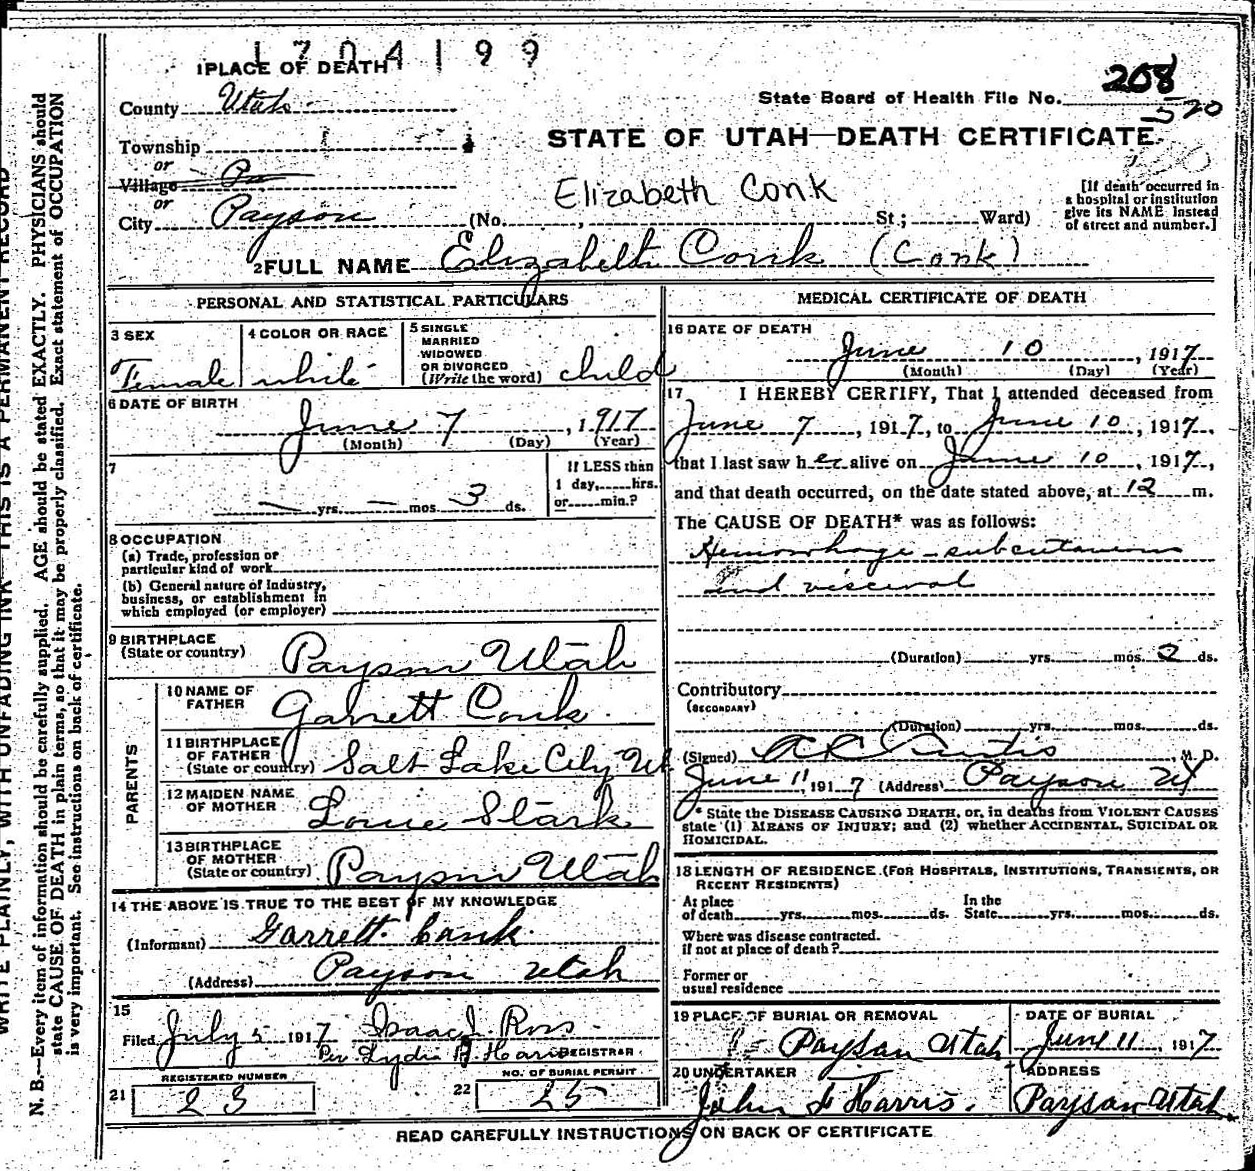 1704199
1 PLACE OF DEATH
County Utah
State Board of Health File No. 208
520
Township
or
Village
or
City Payson
STATE OF UTAH—DEATH CERTIFICATE
Elizabeth Conk
(No. , St.; Ward)
[If death occurred in
a hospital or institution
give its NAME instead
of street and number.]
2 FULL NAME Elizabeth Conk (Conk)
PERSONAL AND STATISTICAL PARTICULARS
3 SEX
Female
4 COLOR OR RACE
white
5 SINGLE
MARRIED
WIDOWED
OR DIVORCED
(Write the word) child
6 DATE OF BIRTH
June 7, 1917
(Month) (Day) (Year)
7
— yrs. — mos. 3 ds.
If LESS than
1 day, hrs.
or min.?
8 OCCUPATION
(a) Trade, profession or
particular kind of work
(b) General nature of industry,
business, or establishment in
which employed (or employer)
9 BIRTHPLACE
(State or country) Payson Utah
PARENTS
10 NAME OF
FATHER Garrett Conk.
11 BIRTHPLACE
OF FATHER
(State or country) Salt Lake City Ut
12 MAIDEN NAME
OF MOTHER Louie Stark
13 BIRTHPLACE
OF MOTHER
(State or country) Payson Utah
14 THE ABOVE IS TRUE TO THE BEST OF MY KNOWLEDGE
(Informant) Garrett Conk.
(Address) Payson Utah
15
Filed July 5 1917 Isaac J. Ross.
Per Lydia B. Harris REGISTRAR
REGISTERED NUMBER
21 23
NO. OF BURIAL PERMIT
22 25
MEDICAL CERTIFICATE OF DEATH
16 DATE OF DEATH
June 10, 1917
(Month) (Day) (Year)
17 I HEREBY CERTIFY, That I attended deceased from
June 7, 1917, to June 10, 1917,
that I last saw her alive on June 10, 1917,
and that death occurred, on the date stated above, at 12 m.
The CAUSE OF DEATH* was as follows:
Hemorrhage – subcutaneous
and visceral
(Duration) yrs. mos. 2 ds.
Contributory
(SECONDARY)
(Duration) yrs. mos. ds.
(Signed) Curtis M. D.
June 11, 1917 (Address) Payson Ut
* State the DISEASE CAUSING DEATH, or, in deaths from VIOLENT CAUSES
state (1) MEANS OF INJURY; and (2) whether ACCIDENTAL, SUICIDAL OR
HOMICIDAL.
18 LENGTH OF RESIDENCE (FOR HOSPITALS, INSTITUTIONS, TRANSIENTS, OR
RECENT RESIDENTS)
At place
of death yrs. mos. ds.
In the
State yrs. mos. ds.
Where was disease contracted.
if not at place of death?
Former or
usual residence
19 PLACE OF BURIAL OR REMOVAL
Payson Utah
DATE OF BURIAL
June 11 1917
20 UNDERTAKER
John F Harris.
ADDRESS
Payson Utah
READ CAREFULLY INSTRUCTIONS ON BACK OF CERTIFICATE
WRITE PLAINLY, WITH UNFADING INK—THIS IS A PERMANENT RECORD
N. B.—Every item of information should be carefully supplied. AGE should be stated EXACTLY. PHYSICIANS should
state CAUSE OF DEATH in plain terms, so that it may be properly classified. Exact statement of OCCUPATION
is very important. See instructions on back of certificate.